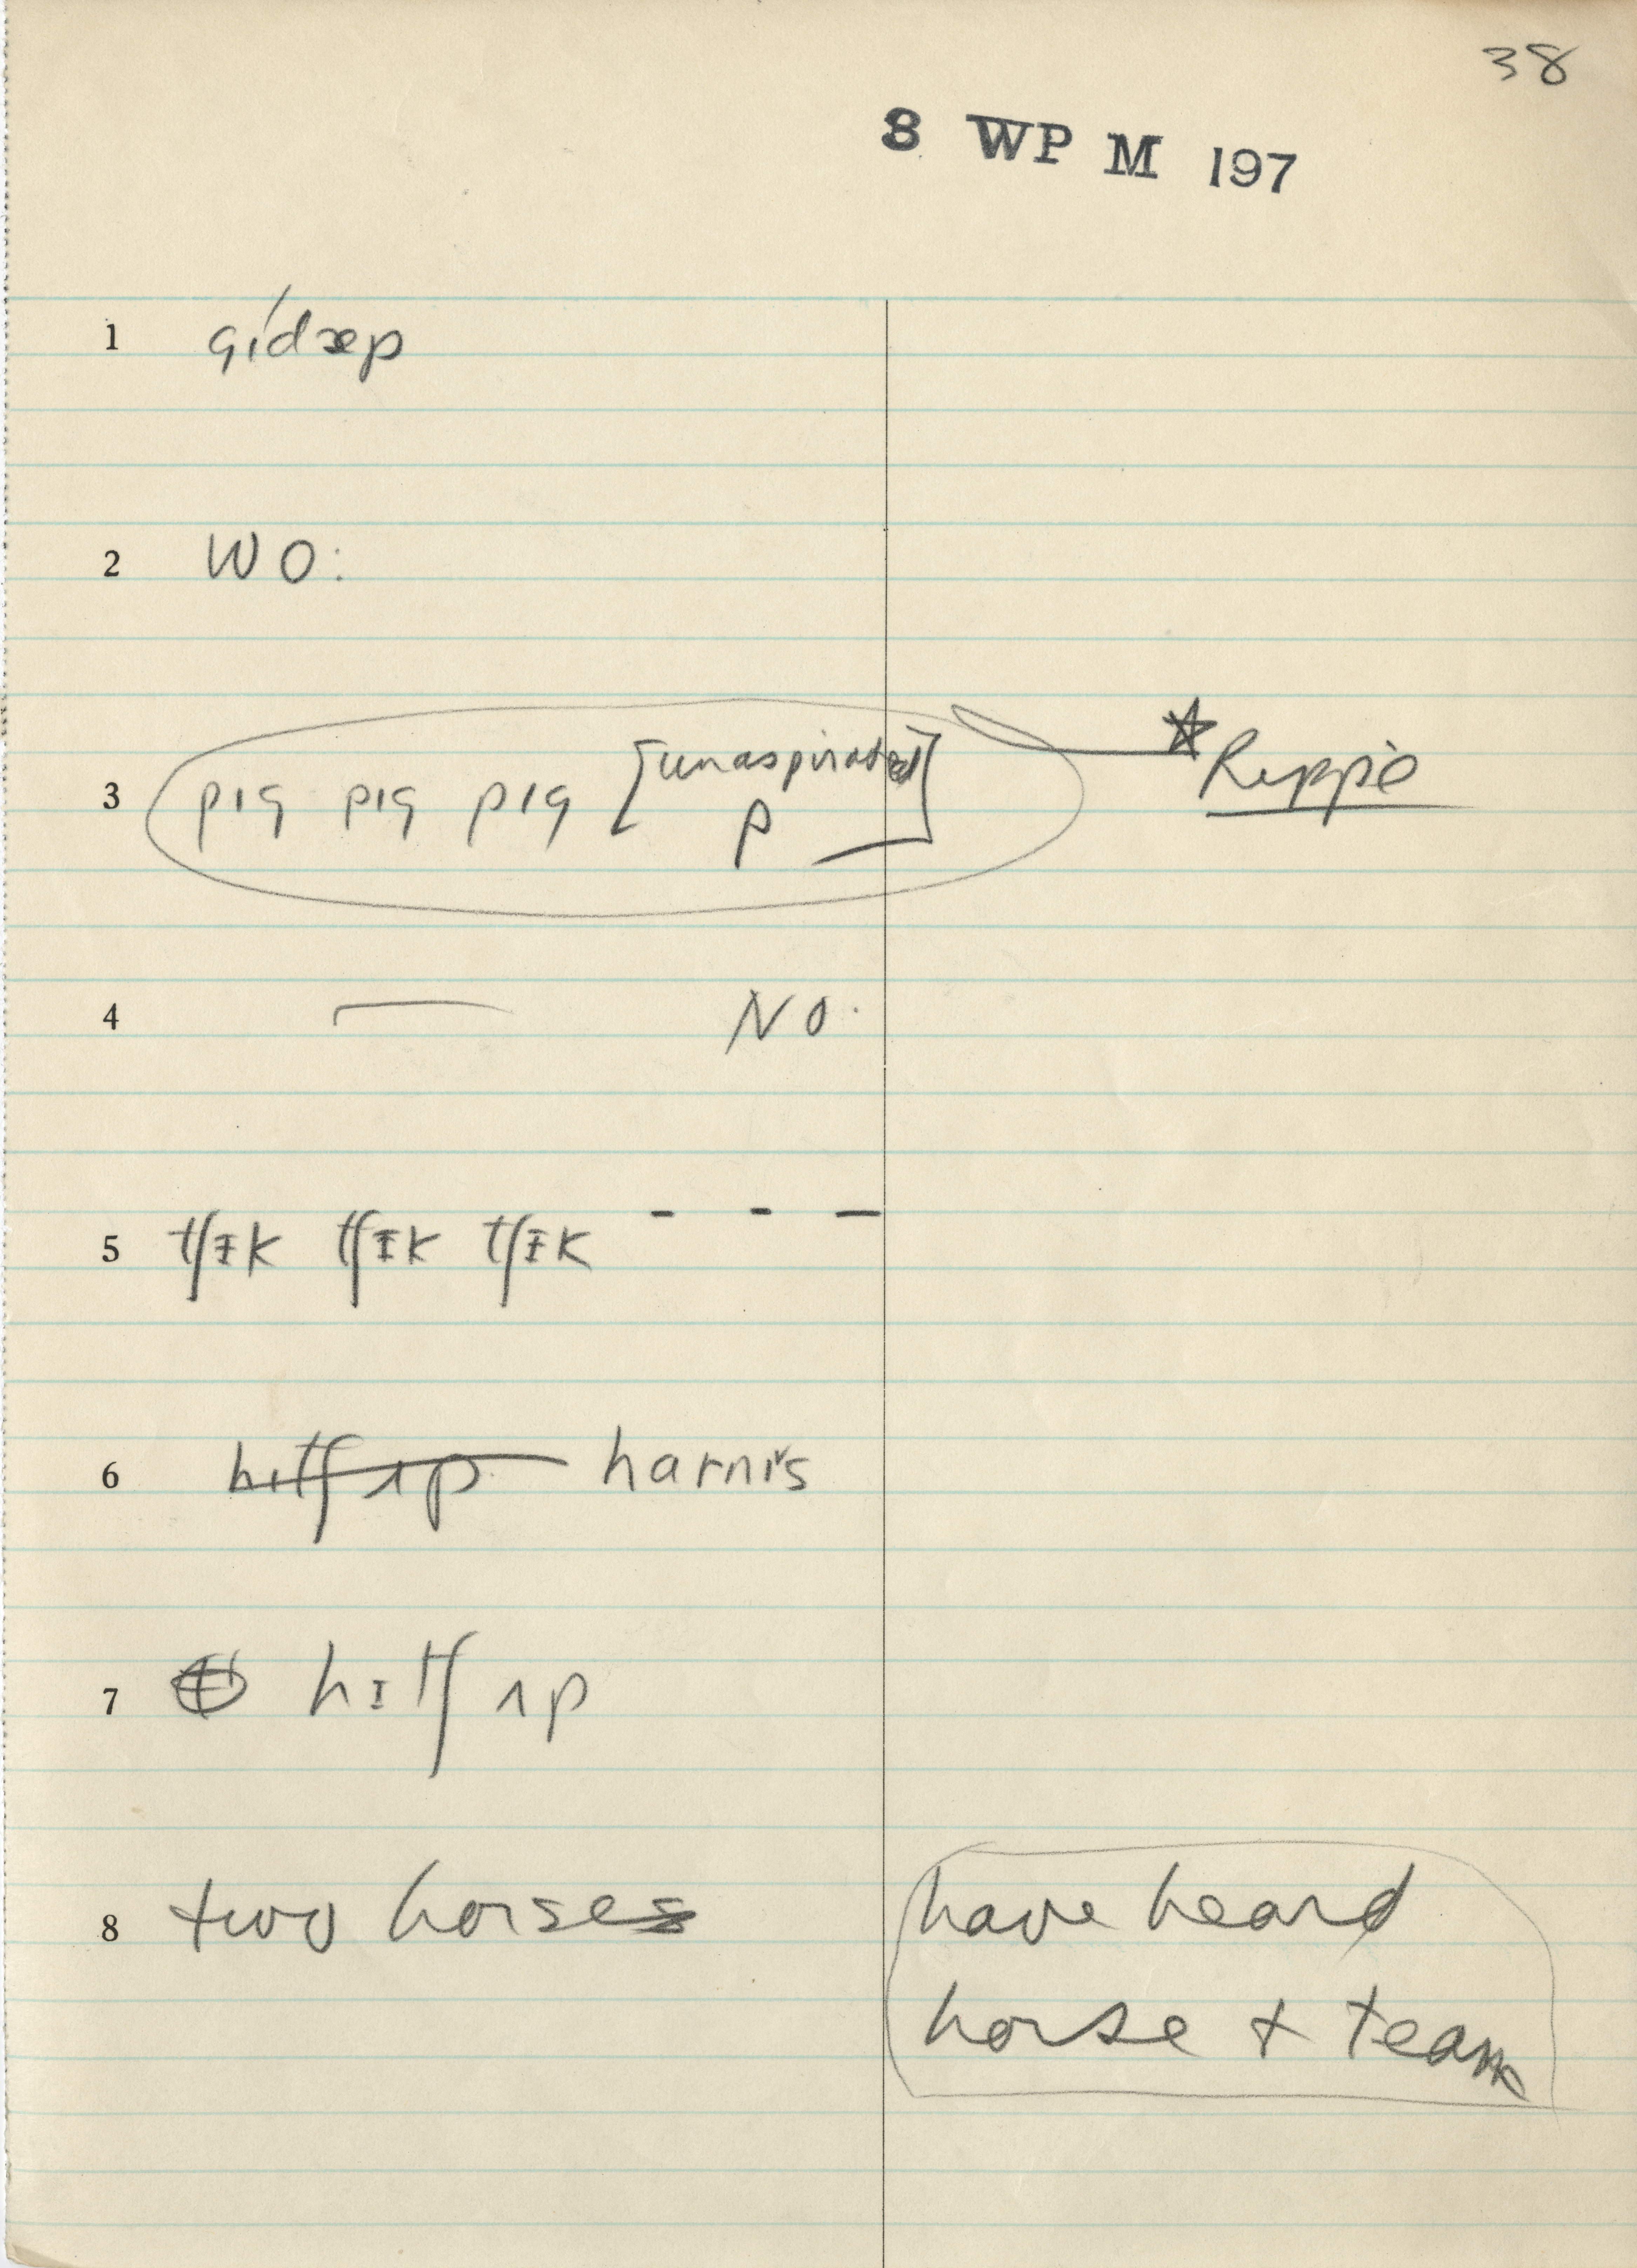 38
8 WP M 197
1 gídæp
2 wo:
3 pɪg pɪg pɪg [unaspirated p] *
4 — NO.
5 tʃɪk tʃɪk tʃɪk - - —
6 hɪtʃ ʌp harnɪs
7 hɪtʃ ʌp
8 two horses
have heard
horse + team